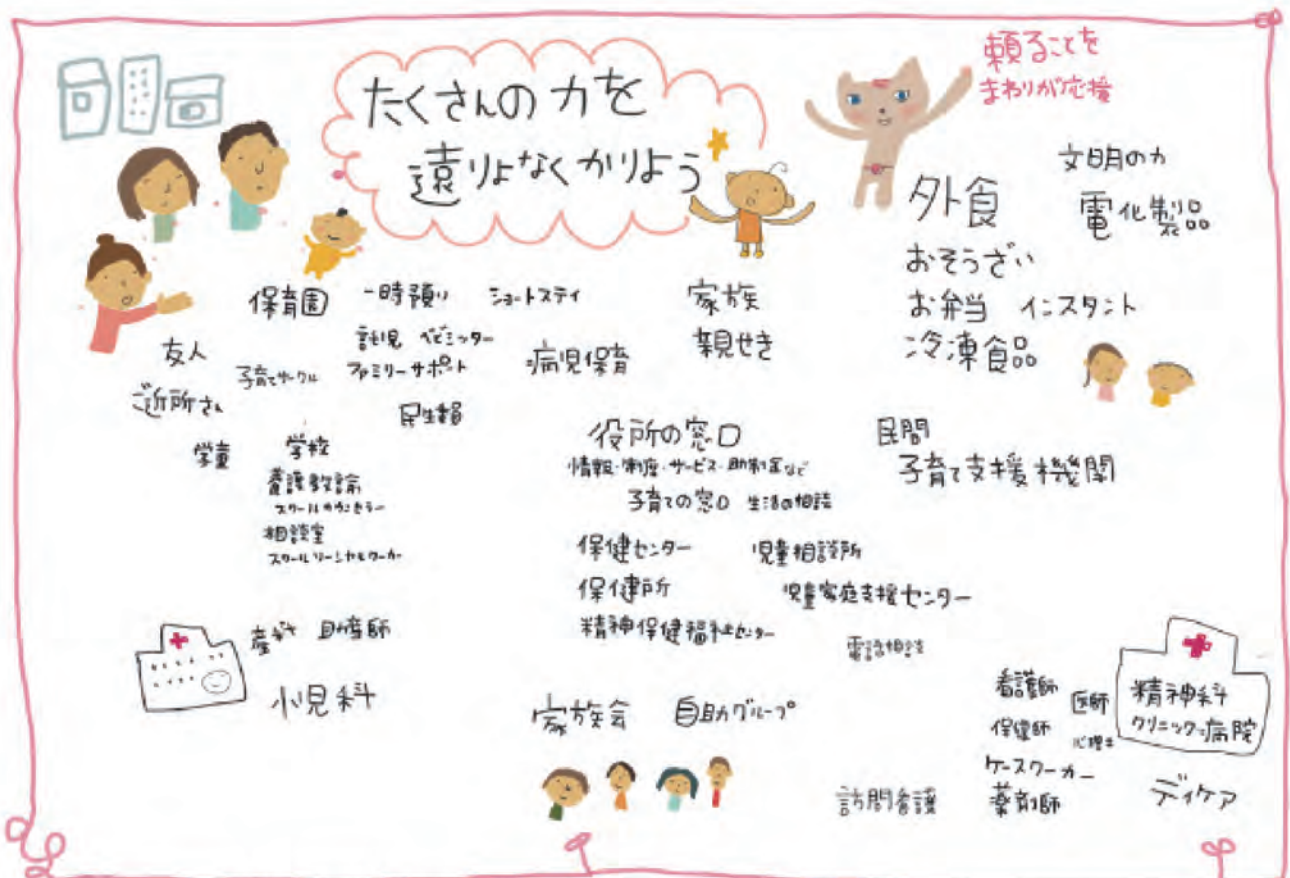 たくさんの力を
遠りょなくかりよう
頼ることを
まわりが応援
文明の力
電化製品
外食
おそうざい
お弁当 インスタント
冷凍食品
保育園 一時預り ショートステイ
託児 ベビーシッター
ファミリーサポート
病児保育
家族
親せき
友人
子育てサークル
ご近所さん
民生委員
学童
学校
養護教諭
スクールカウンセラー
相談室
スクールソーシャルワーカー
役所の窓口
情報・制度・サービス・助制金など
子育ての窓口 生活の相談
民間
子育て支援機関
保健センター 児童相談所
保健所 児童家庭支援センター
精神保健福祉センター
電話相談
助産師
小児科
家族会 自助グループ
看護師 医師
保健師 心理士
ケースワーカー
薬剤師
訪問看護
精神科
クリニック・病院
デイケア